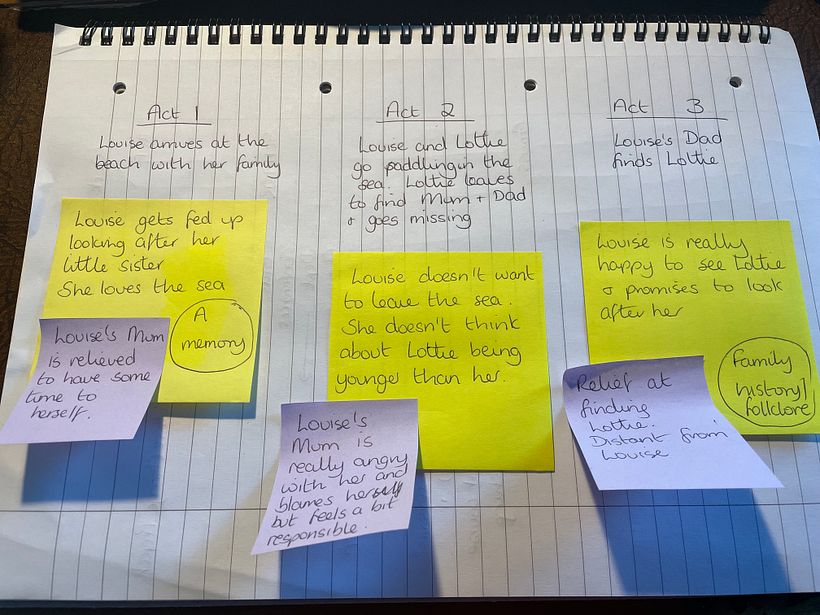 Act 1
Louise arrives at the
beach with her family
Louise gets fed up
looking after her
little sister
She loves the sea
A
memory
Louise's Mum
is relieved
to have some
time to
herself.
Act 2
Louise and Lottie
go paddling in the
sea. Lottie leaves
to find Mum + Dad
+ goes missing
Louise doesn't want
to leave the sea.
She doesn't think
about Lottie being
younger than her.
Louise's
Mum is
really angry
with her and
blames
but feels a bit
responsible.
Act 3
Louise's Dad
finds Lottie
Louise is really
happy to see Lottie
+ promises to look
after her
Family
history/
folklore
Relief at
finding
Lottie.
Distant from
Louise